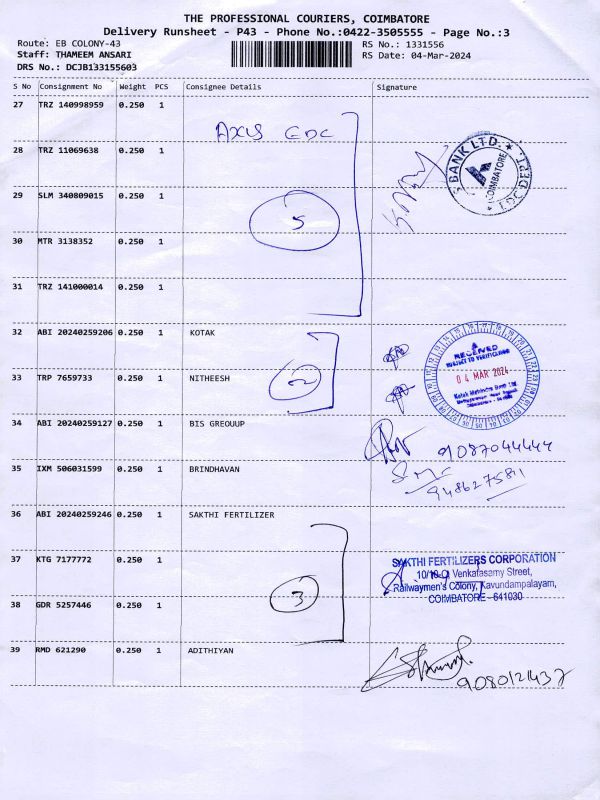 THE PROFESSIONAL COURIERS, COIMBATORE
Delivery Runsheet - P43 - Phone No.:0422-3505555 - Page No.:3
Route: EB COLONY-43 RS No.: 1331556
Staff: THAMEEM ANSARI RS Date: 04-Mar-2024
DRS No.: DCJB133155603
S No Consignment No Weight PCS Consignee Details Signature
27 TRZ 140998959 0.250 1
AXIS CDC
28 TRZ 11069638 0.250 1
BANK LTD. * COIMBATORE * CDC DEPT.
29 SLM 340809015 0.250 1
5
30 MTR 3138352 0.250 1
31 TRZ 141000014 0.250 1
32 ABI 20240259206 0.250 1 KOTAK
RECEIVED
SUBJECT TO VERIFICATION
04 MAR 2024
Kotak Mahindra Bank Ltd
33 TRP 7659733 0.250 1 NITHEESH
2
34 ABI 20240259127 0.250 1 BIS GREOUUP
9087044444
35 IXM 506031599 0.250 1 BRINDHAVAN
9486275811
36 ABI 20240259246 0.250 1 SAKTHI FERTILIZER
37 KTG 7177772 0.250 1
SAKTHI FERTILIZERS CORPORATION
10/10-9 Venkatasamy Street,
Railwaymen's Colony, Kavundampalayam,
COIMBATORE - 641030
3
38 GDR 5257446 0.250 1
39 RMD 621290 0.250 1 ADITHIYAN
9080121437